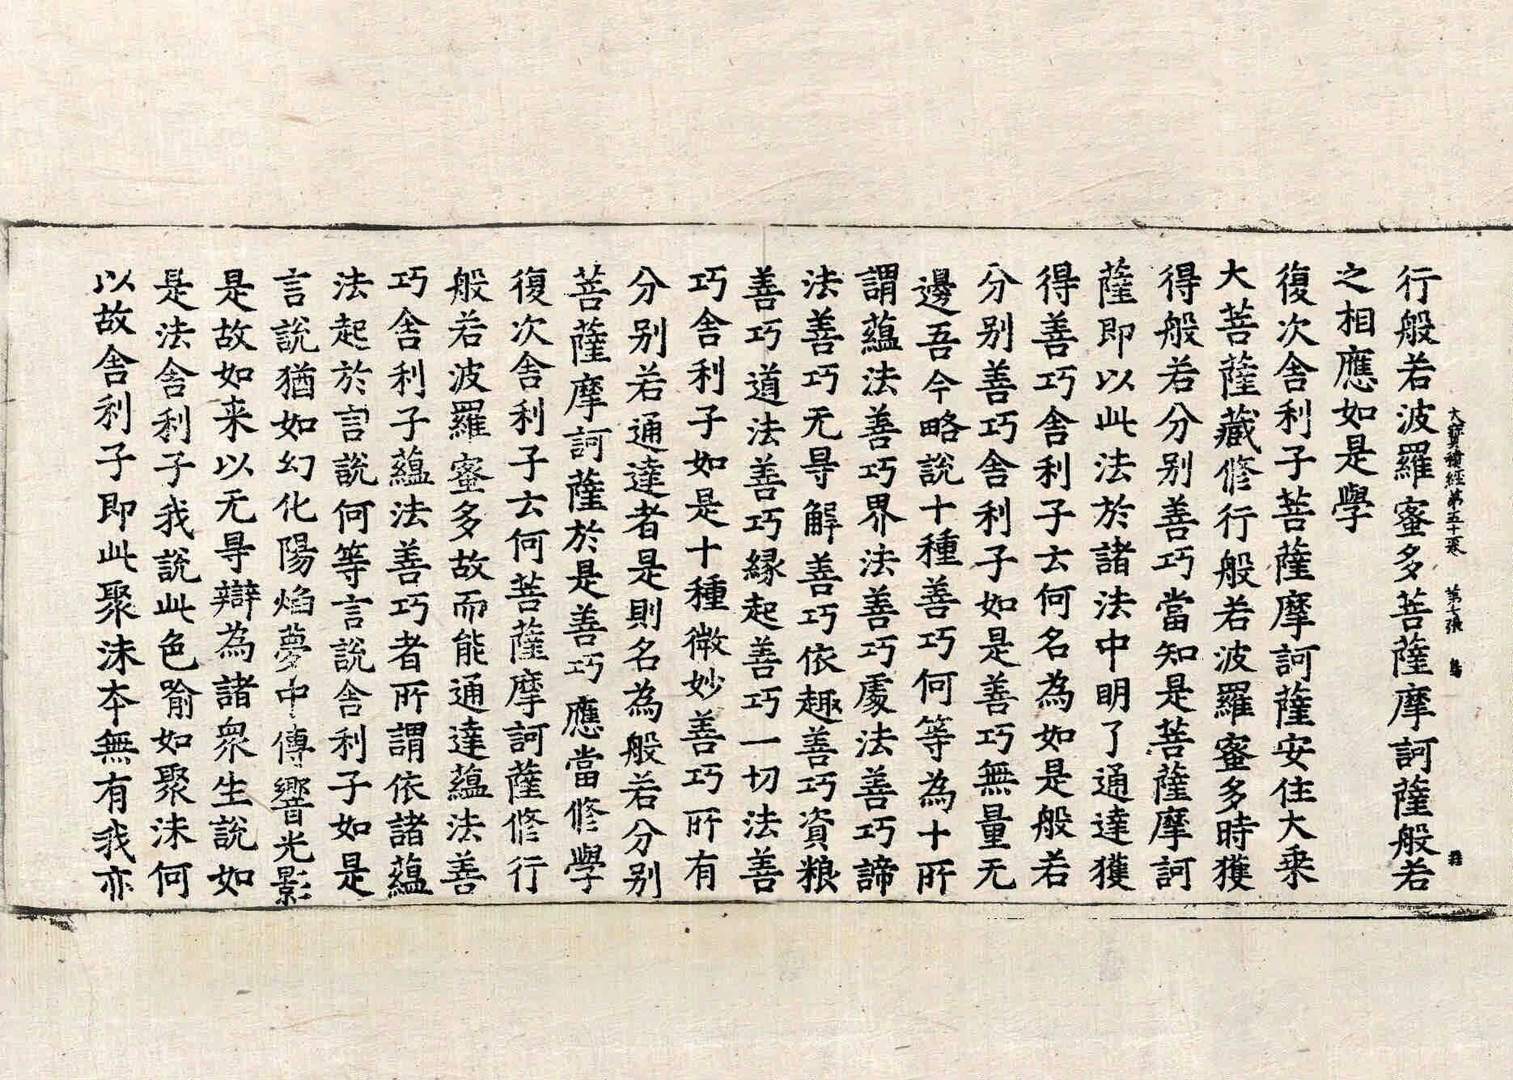 行般若波羅蜜多菩薩摩訶薩般若
之相應如是學
復次舍利子菩薩摩訶薩安住大乘
大菩薩藏修行般若波羅蜜多時獲
得般若分别善巧當知是菩薩摩訶
薩即以此法於諸法中明了通達獲
得善巧舍利子云何名為如是般若
分别善巧舍利子如是善巧無量无
邊吾今略說十種善巧何等為十所
謂蘊法善巧界法善巧處法善巧諦
法善巧无㝵解善巧依趣善巧資粮
善巧道法善巧緣起善巧一切法善
巧舍利子如是十種微妙善巧所有
分别若通達者是則名為般若分别
菩薩摩訶薩於是善巧應當修學
復次舍利子云何菩薩摩訶薩修行
般若波羅蜜多故而能通達蘊法善
巧舍利子蘊法善巧者所謂依諸蘊
法起於言說何等言說舍利子如是
言說猶如幻化陽焰夢中傳響光影
是故如来以无㝵辯為諸眾生說如
是法舍利子我說此色喻如聚沫何
以故舍利子即此聚沫本無有我亦
大寶積經第五十卷 第七張